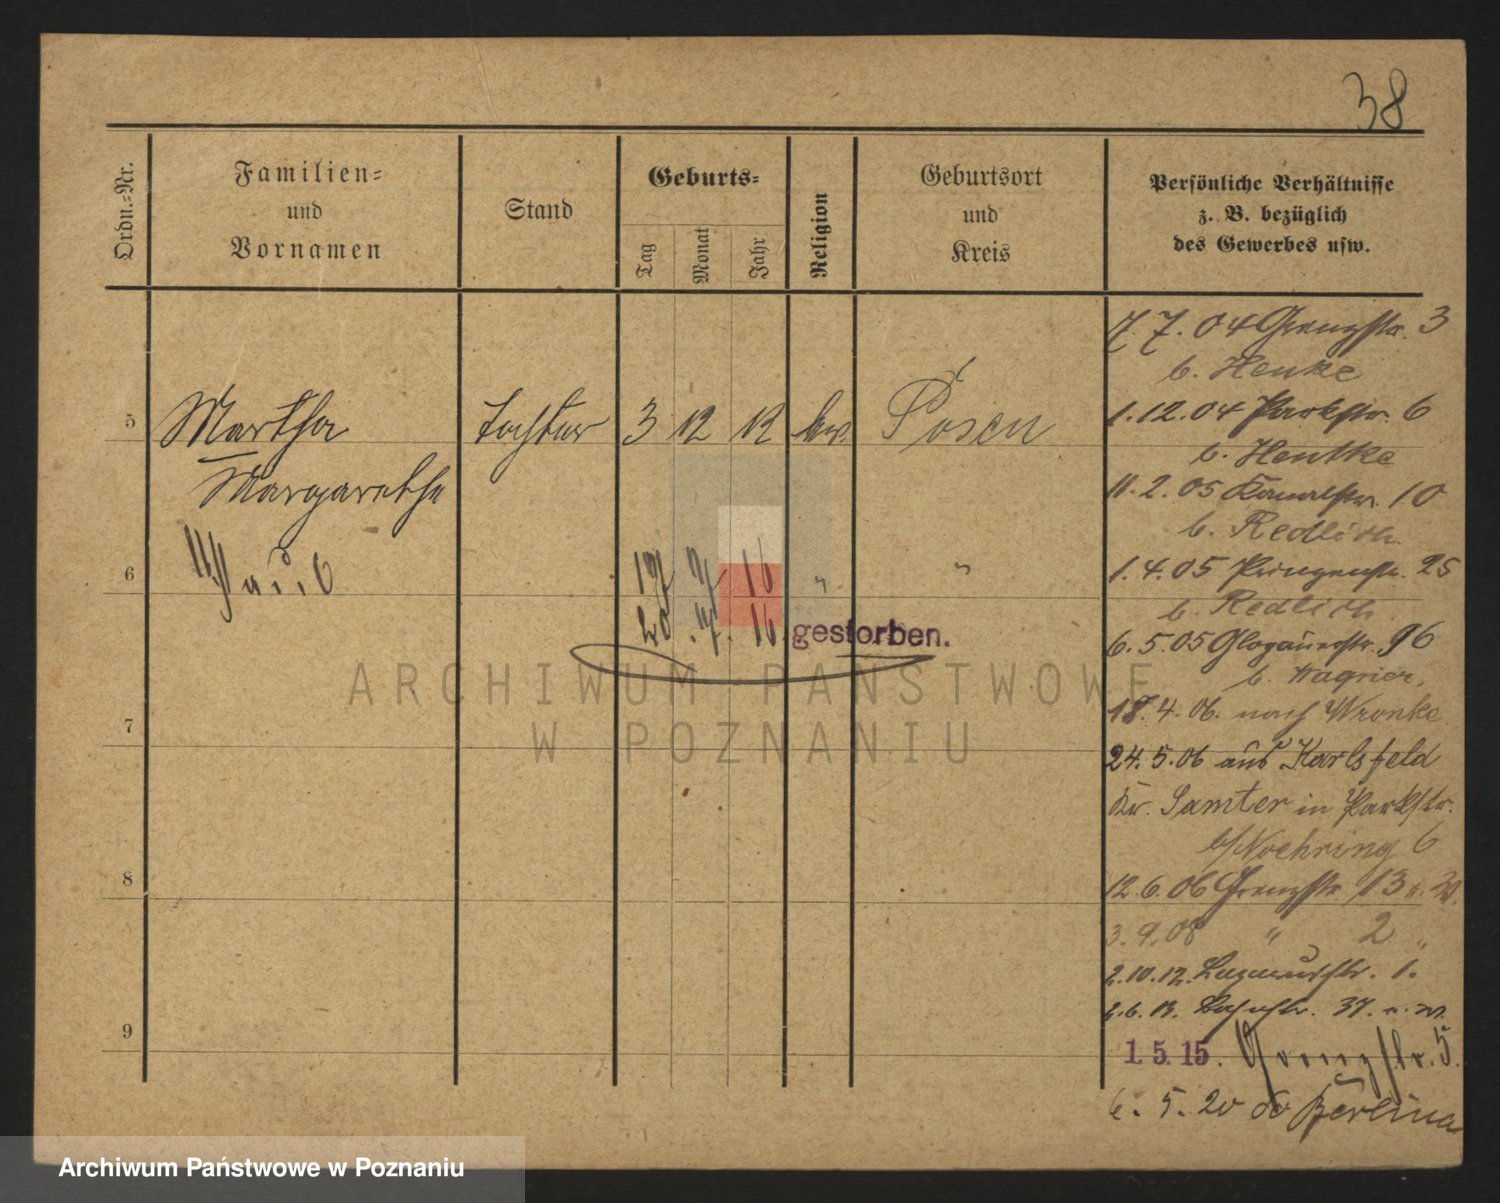 38
Ordn.-Nr.
Familien-
und
Vornamen
Stand
Geburts-
Tag
Monat
Jahr
Religion
Geburtsort
und
Kreis
Persönliche Verhältnisse
z. B. bezüglich
des Gewerbes usw.
5 Martha Tochter 3 12 12 ev. Posen
Margarethe
6 Paul 17 7 16 " "
20. 7. 16. gestorben.
7
8
9
7. 7. 04 Grenzstr. 3
b. Henke
1.12.04 Parkstr. 6
b. Hentke
11.2.05 Kanalstr. 10
b. Redlich
1.4.05 Prinzenstr. 25
b. Redlich
6.5.05 Glogauerstr. 96
b. Wagner,
18.4.06. nach Wronke
24.5.06 aus Karlsfeld
Kr. Samter in Parkstr.
b/Noehring 6
12.6.06 Grenzstr. 13
3.9.08 " 2 "
2.10.12. Lazarusstr. 1.
2.6.13. 37.
1.5.15. Grenzstr. 5.
6. 5. 20 do Berlina
ARCHIWUM PAŃSTWOWE
W POZNANIU
Archiwum Państwowe w Poznaniu